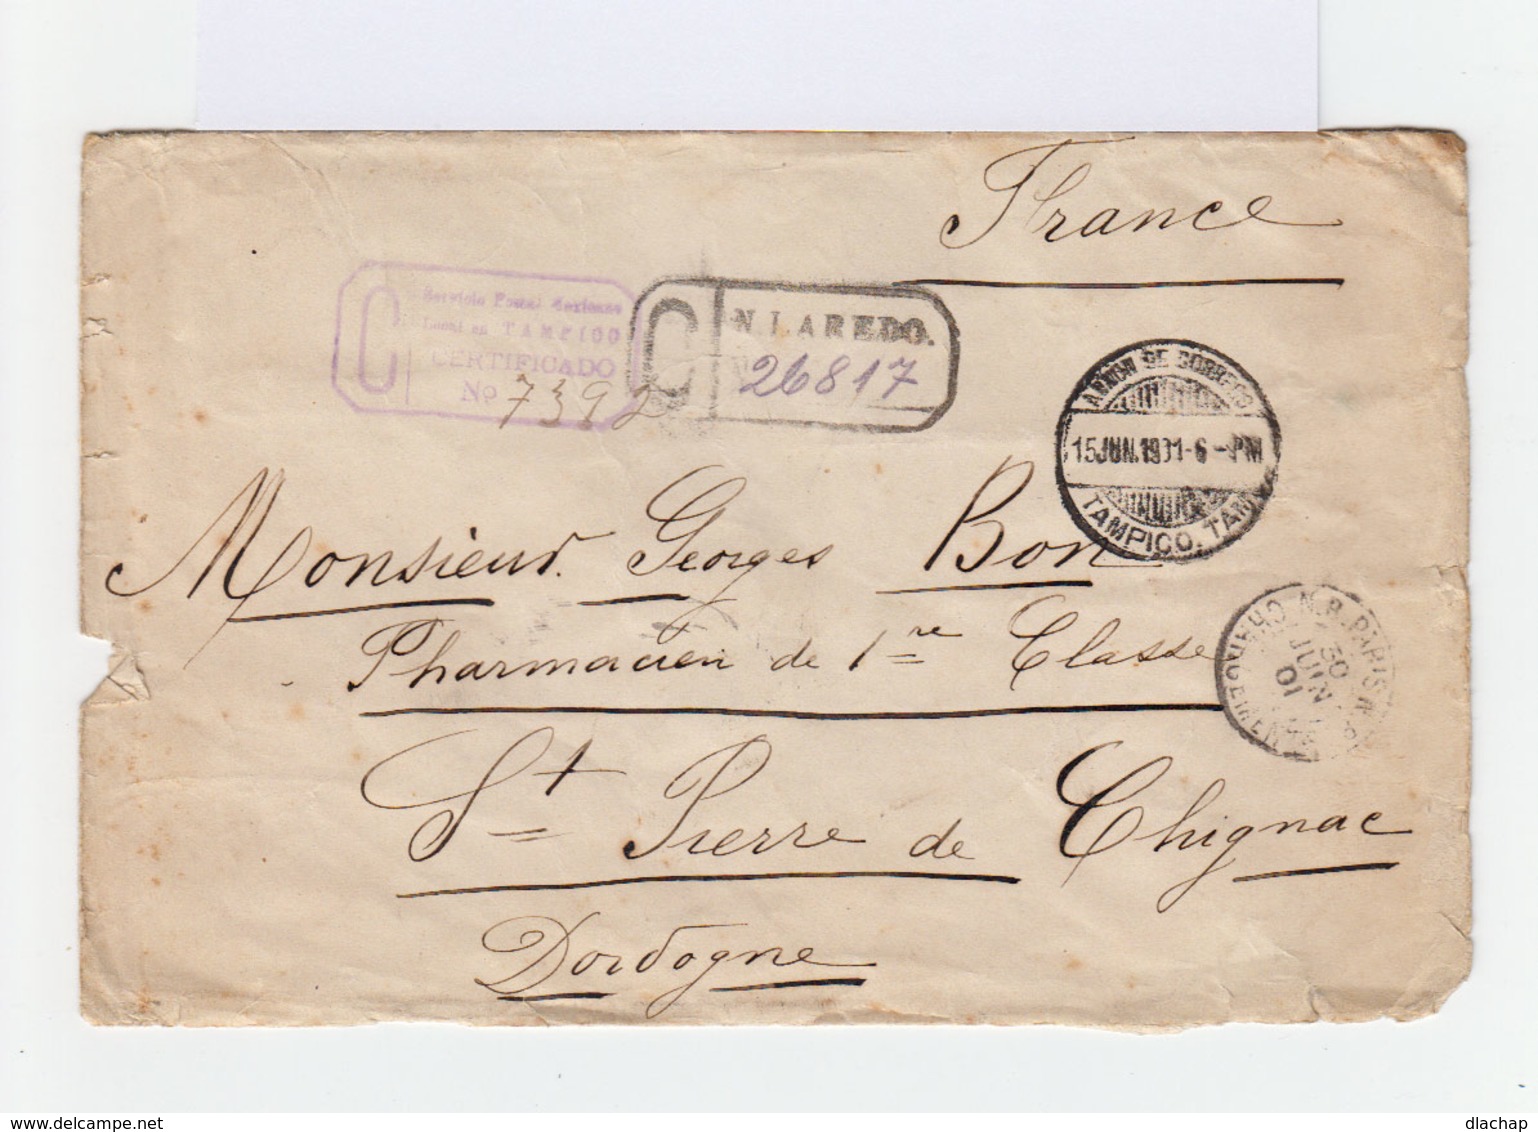 France
Servicio Postal Mexicano
Local en TAMPICO
CERTIFICADO
No 7392
C
C
N. LAREDO.
26817
ADMON DE CORREOS
15 JUN. 1901-6-PM
TAMPICO. TAMPS
Monsieur. Georges Bon
Pharmacien de 1re Classe
St Pierre de Chignac
Dordogne
CHARGEMENTS
PARIS
30
JUIN
01
delcampe.net
dlachap